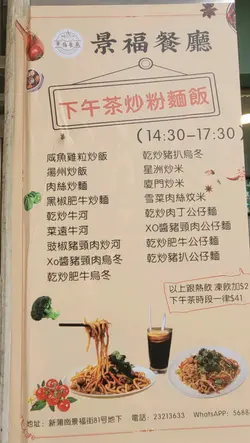 景福餐廳
景福餐廳
下午茶炒粉麵飯
(14:30-17:30)
咸魚雞粒炒飯
揚州炒飯
肉絲炒麵
黑椒肥牛炒麵
乾炒牛河
菜遠牛河
豉椒豬頸肉炒河
Xo醬豬頸肉烏冬
乾炒肥牛烏冬
乾炒豬扒烏冬
星洲炒米
廈門炒米
雪菜肉絲炆米
乾炒肉丁公仔麵
XO醬豬頸肉公仔麵
乾炒肥牛公仔麵
乾炒豬扒公仔麵
以上跟熱飲 凍飲加$2
下午茶時段一律$41
地址: 新蒲崗景福街81號地下 電話: 23213633 WhatsAPP: 5688